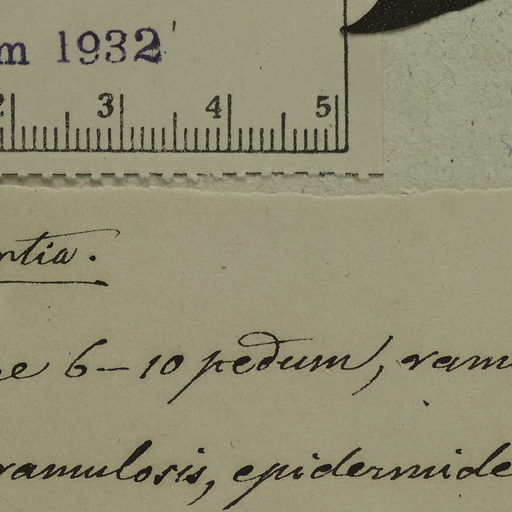 m 1932
2 3 4 5
ntia.
6-10 pedum, ramu
ramulosis, epidermide